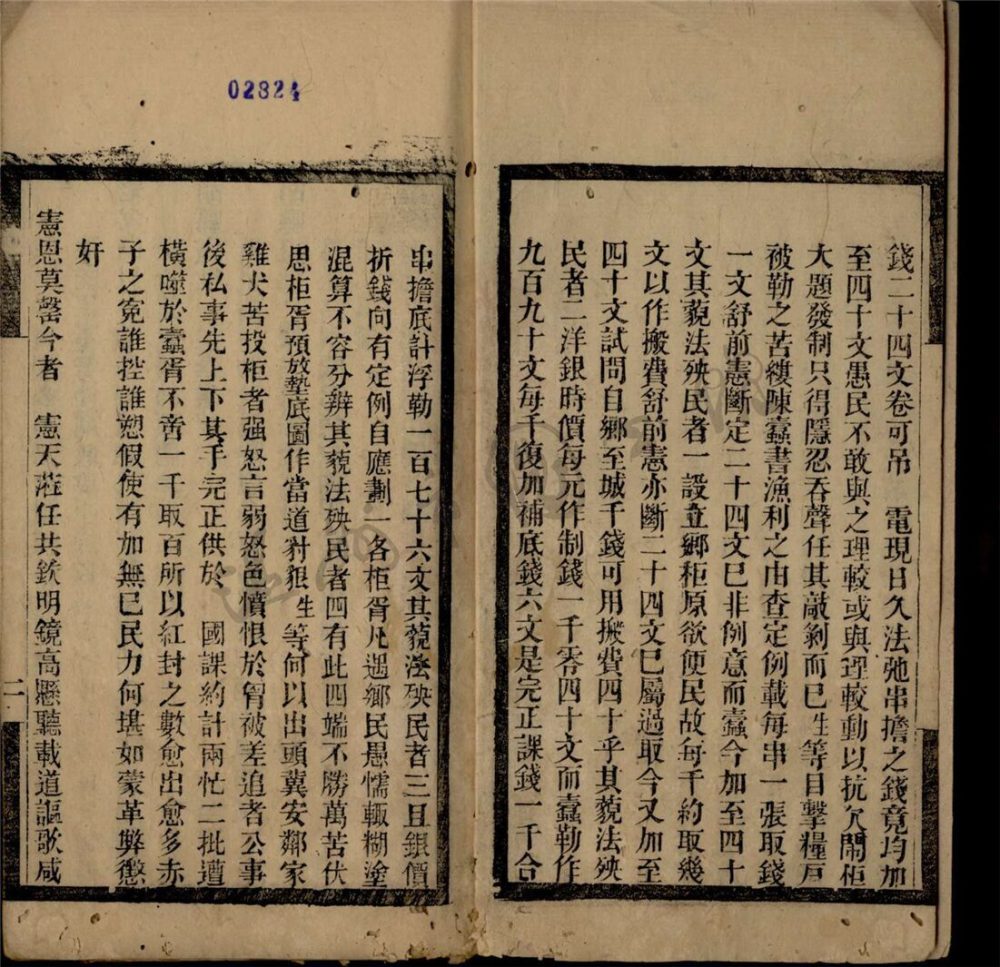 02824
錢二十四文卷可吊　電現日久法弛串擔之錢竟均加
至四十文愚民不敢與之理較或與理較動以抗欠鬧柜
大題發制只得隱忍吞聲任其敲剝而已生等目擊糧戶
被勒之苦縷陳蠹書漁利之由查定例載每串一張取錢
一文舒前憲斷定二十四文已非例意而蠹今加至四十
文其藐法殃民者一設立鄉柜原欲便民故每千約取幾
文以作搬費舒前憲亦斷二十四文已屬過取今又加至
四十文試問自鄉至城千錢可用搬費四十乎其藐法殃
民者二洋銀時價每元作制錢一千零四十文而蠹勒作
九百九十文每千復加補底錢六文是完正課錢一千合
串擔底計浮勒一百七十六文其藐法殃民者三且銀價
折錢向有定例自應劃一各柜胥凡遇鄉民愚懦輒糊塗
混算不容分辨其藐法殃民者四有此四端不勝萬苦伏
思柜胥預放墊底圖作當道豺狠生等何以出頭冀安鄰家
雞犬苦投柜者强怒言弱怒色憤恨於胷被差追者公事
後私事先上下其手完正供於　國課約計兩忙二批遭
橫噬於蠹胥不啻一千取百所以紅封之數愈出愈多赤
子之冤誰控誰愬假使有加無已民力何堪如蒙革弊懲
奸
憲恩莫罄今者　憲天蒞任共欽明鏡高懸聽載道謳歌咸
二